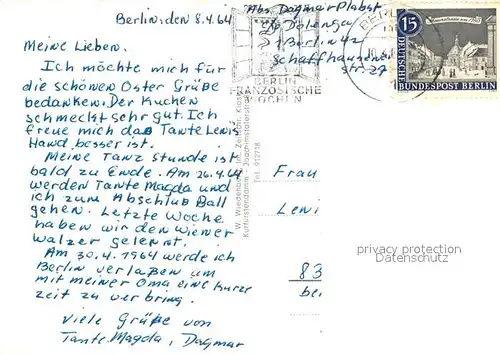 Berlin, den 8.4.64
Meine Lieben.
Ich möchte mich für
die schönen Oster Grüße
bedanken. Der Kuchen
schmeckt sehr gut. Ich
freue mich das Tante Lenis
Hand besser ist.
Meine Tanz stunde ist
bald zu Ende. Am 26.4.64
werden Tante Magda und
ich zum Abschluß Ball
gehen. Letzte Woche
haben wir den Wiener
Walzer gelernt.
Am 30.4.1964 werde ich
Berlin verlaßen um
mit meiner Oma eine kurze
zeit zu verbring.
Viele Grüße von
Tante Magda, Dagmar
Abs. Dagmar Plabst
Dolenga
1 Berlin 42
Schaffhausener
str. 27
BERLIN
FRANZÖSISCHE
WOCHEN
BER
15
DEUTSCHE
BUNDESPOST BERLIN
W. Wiedenbach
Kurfürstendamm - Joachimstalerstr.
Tel. 912718
Frau
Leni
privacy protection
Datenschutz
83
bei